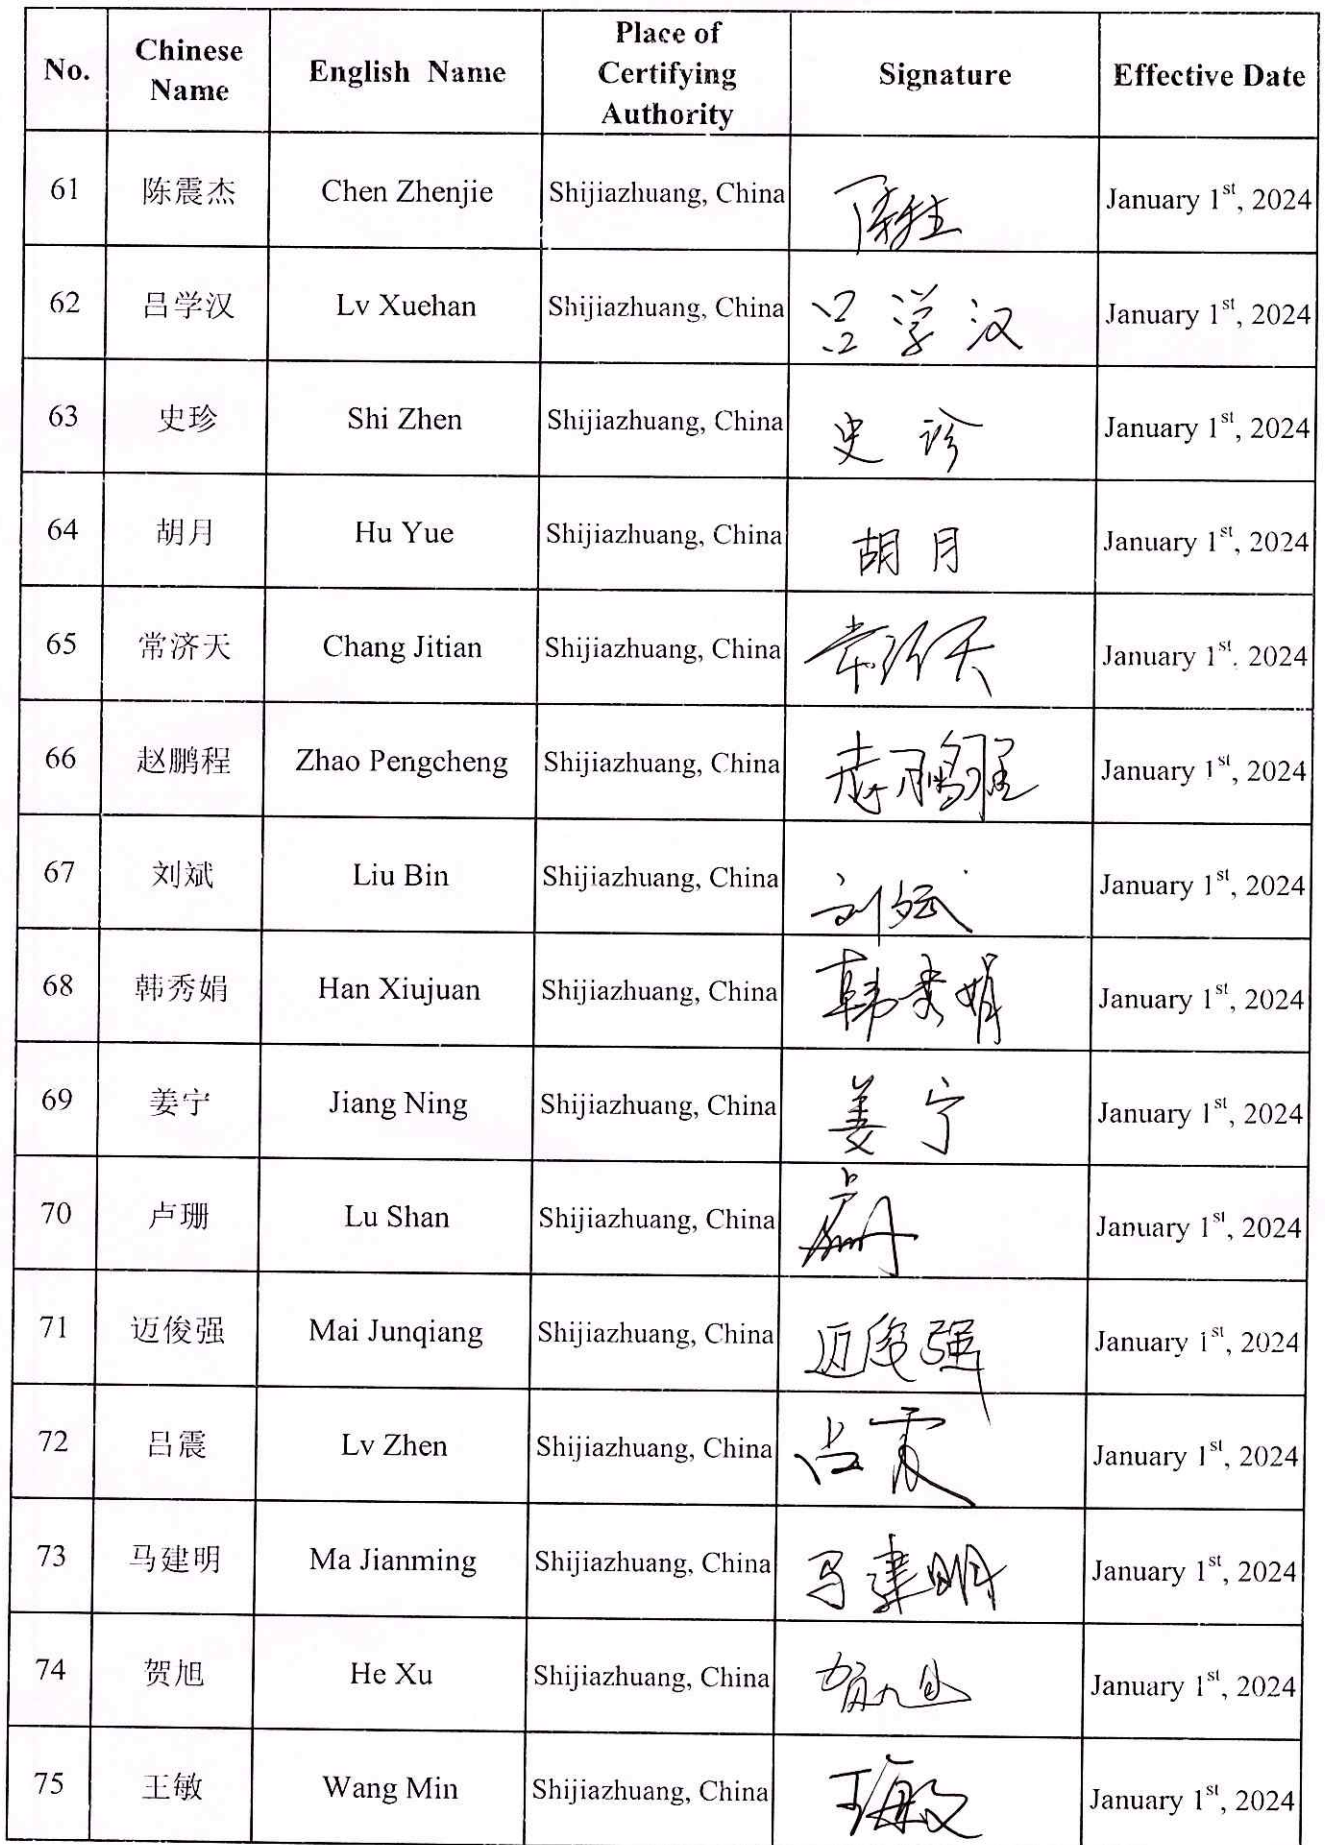 No. Chinese Name English Name Place of Certifying Authority Signature Effective Date
61 陈震杰 Chen Zhenjie Shijiazhuang, China January 1st, 2024
62 吕学汉 Lv Xuehan Shijiazhuang, China 吕学汉 January 1st, 2024
63 史珍 Shi Zhen Shijiazhuang, China 史珍 January 1st, 2024
64 胡月 Hu Yue Shijiazhuang, China 胡月 January 1st, 2024
65 常济天 Chang Jitian Shijiazhuang, China 常济天 January 1st. 2024
66 赵鹏程 Zhao Pengcheng Shijiazhuang, China 赵鹏程 January 1st, 2024
67 刘斌 Liu Bin Shijiazhuang, China 刘斌 January 1st, 2024
68 韩秀娟 Han Xiujuan Shijiazhuang, China 韩秀娟 January 1st, 2024
69 姜宁 Jiang Ning Shijiazhuang, China 姜宁 January 1st, 2024
70 卢珊 Lu Shan Shijiazhuang, China January 1st, 2024
71 迈俊强 Mai Junqiang Shijiazhuang, China 迈俊强 January 1st, 2024
72 吕震 Lv Zhen Shijiazhuang, China 吕震 January 1st, 2024
73 马建明 Ma Jianming Shijiazhuang, China 马建明 January 1st, 2024
74 贺旭 He Xu Shijiazhuang, China 贺旭 January 1st, 2024
75 王敏 Wang Min Shijiazhuang, China 王敏 January 1st, 2024